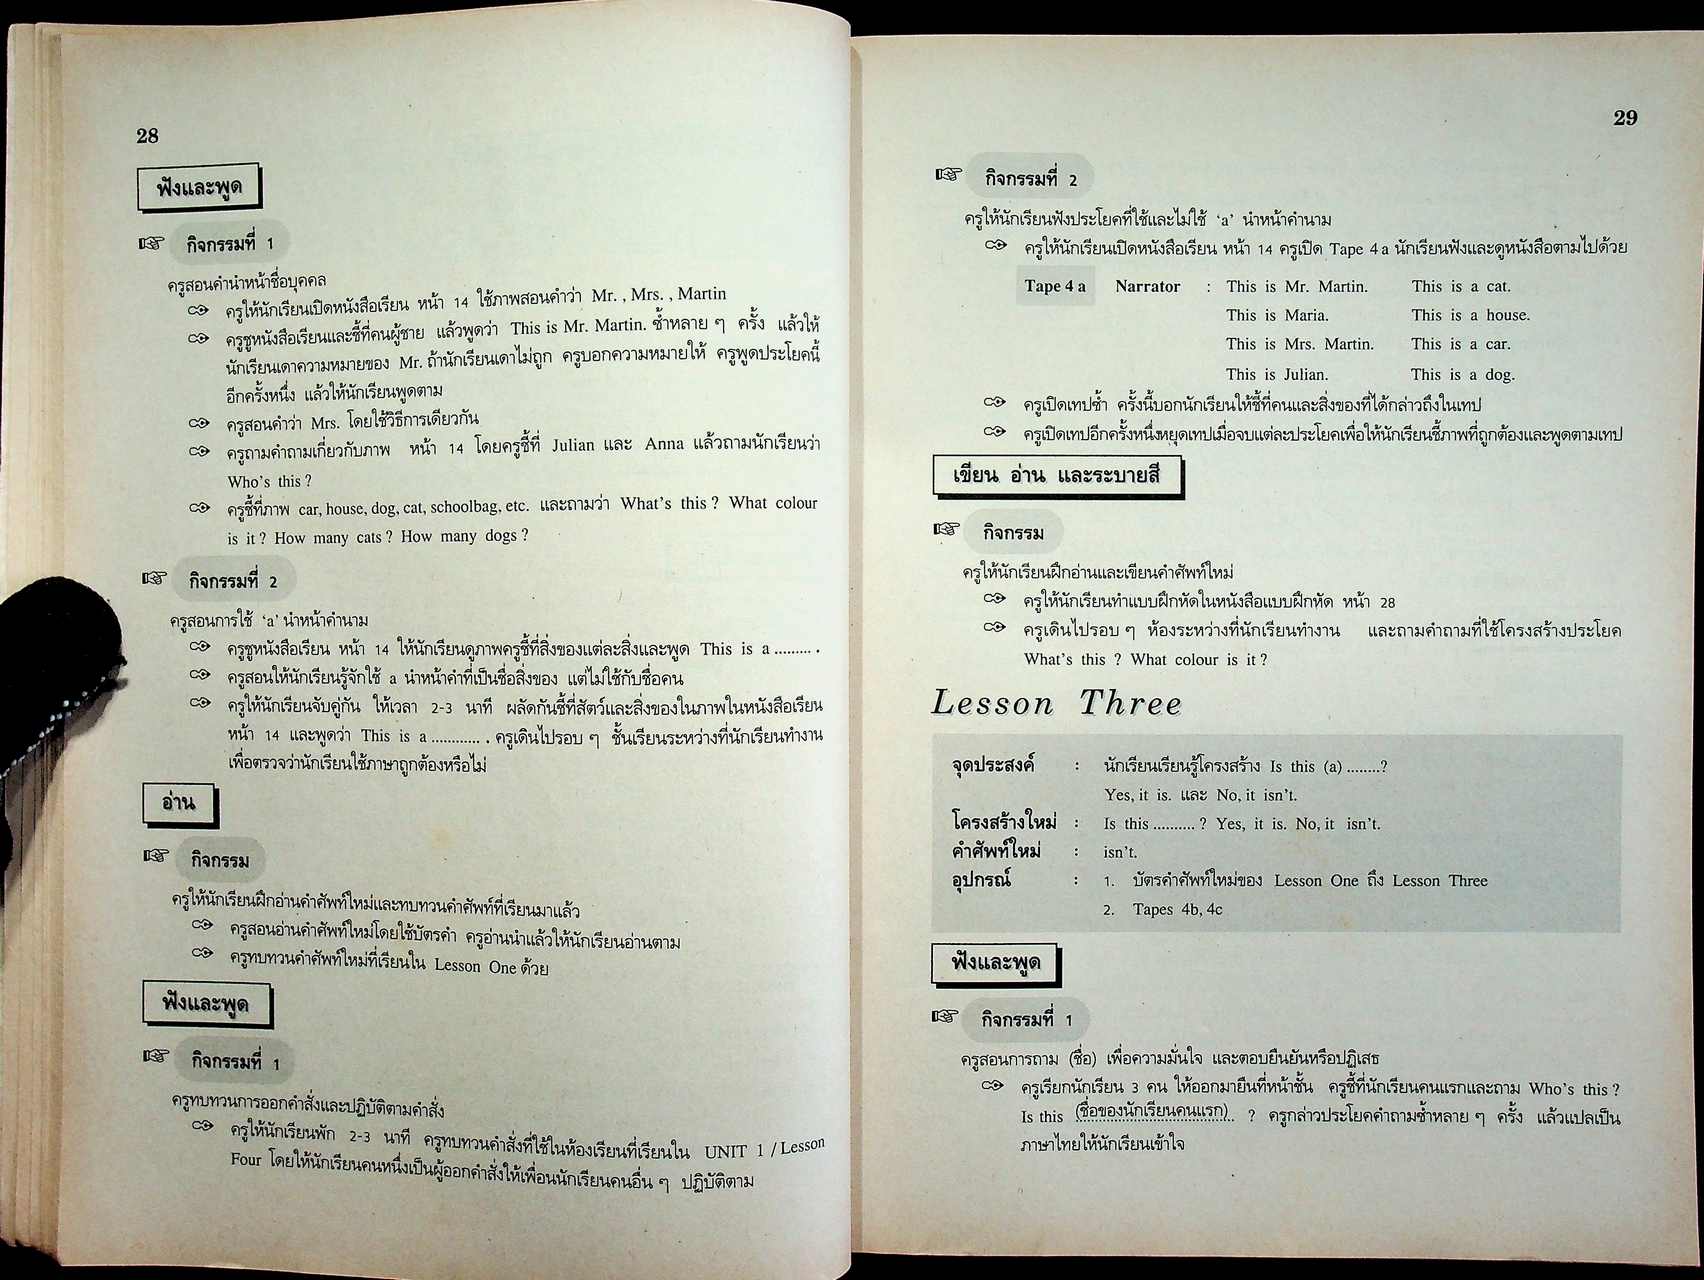 28
ฟังและพูด
กิจกรรมที่ 1
ครูสอนคำนำหน้าชื่อบุคคล
ครูให้นักเรียนเปิดหนังสือเรียน หน้า 14 ใช้ภาพสอนคำว่า Mr. , Mrs. , Martin
ครูชูหนังสือเรียนและชี้ที่คนผู้ชาย แล้วพูดว่า This is Mr. Martin. ซ้ำหลาย ๆ ครั้ง แล้วให้
นักเรียนเดาความหมายของ Mr. ถ้านักเรียนเดาไม่ถูก ครูบอกความหมายให้ ครูพูดประโยคนี้
อีกครั้งหนึ่ง แล้วให้นักเรียนพูดตาม
ครูสอนคำว่า Mrs. โดยใช้วิธีการเดียวกัน
ครูถามคำถามเกี่ยวกับภาพ หน้า 14 โดยครูชี้ที่ Julian และ Anna แล้วถามนักเรียนว่า
Who's this ?
ครูชี้ที่ภาพ car, house, dog, cat, schoolbag, etc. และถามว่า What's this ? What colour
is it ? How many cats ? How many dogs ?
กิจกรรมที่ 2
ครูสอนการใช้ 'a' นำหน้าคำนาม
ครูชูหนังสือเรียน หน้า 14 ให้นักเรียนดูภาพครูชี้ที่สิ่งของแต่ละสิ่งและพูด This is a ......... .
ครูสอนให้นักเรียนรู้จักใช้ a นำหน้าคำที่เป็นชื่อสิ่งของ แต่ไม่ใช้กับชื่อคน
ครูให้นักเรียนจับคู่กัน ให้เวลา 2-3 นาที ผลัดกันชี้ที่สัตว์และสิ่งของในภาพในหนังสือเรียน
หน้า 14 และพูดว่า This is a ............ . ครูเดินไปรอบ ๆ ชั้นเรียนระหว่างที่นักเรียนทำงาน
เพื่อตรวจว่านักเรียนใช้ภาษาถูกต้องหรือไม่
อ่าน
กิจกรรม
ครูให้นักเรียนฝึกอ่านคำศัพท์ใหม่และทบทวนคำศัพท์ที่เรียนมาแล้ว
ครูสอนอ่านคำศัพท์ใหม่โดยใช้บัตรคำ ครูอ่านนำแล้วให้นักเรียนอ่านตาม
ครูทบทวนคำศัพท์ใหม่ที่เรียนใน Lesson One ด้วย
ฟังและพูด
กิจกรรมที่ 1
ครูทบทวนการออกคำสั่งและปฏิบัติตามคำสั่ง
ครูให้นักเรียนพัก 2-3 นาที ครูทบทวนคำสั่งที่ใช้ในห้องเรียนที่เรียนใน UNIT 1 / Lesson
Four โดยให้นักเรียนคนหนึ่งเป็นผู้ออกคำสั่งให้เพื่อนนักเรียนคนอื่น ๆ ปฏิบัติตาม
29
กิจกรรมที่ 2
ครูให้นักเรียนฟังประโยคที่ใช้และไม่ใช้ 'a' นำหน้าคำนาม
ครูให้นักเรียนเปิดหนังสือเรียน หน้า 14 ครูเปิด Tape 4 a นักเรียนฟังและดูหนังสือตามไปด้วย
Tape 4 a Narrator : This is Mr. Martin. This is a cat.
This is Maria. This is a house.
This is Mrs. Martin. This is a car.
This is Julian. This is a dog.
ครูเปิดเทปซ้ำ ครั้งนี้บอกนักเรียนให้ชี้ที่คนและสิ่งของที่ได้กล่าวถึงในเทป
ครูเปิดเทปอีกครั้งหนึ่งหยุดเทปเมื่อจบแต่ละประโยคเพื่อให้นักเรียนชี้ภาพที่ถูกต้องและพูดตามเทป
เขียน อ่าน และระบายสี
กิจกรรม
ครูให้นักเรียนฝึกอ่านและเขียนคำศัพท์ใหม่
ครูให้นักเรียนทำแบบฝึกหัดในหนังสือแบบฝึกหัด หน้า 28
ครูเดินไปรอบ ๆ ห้องระหว่างที่นักเรียนทำงาน และถามคำถามที่ใช้โครงสร้างประโยค
What's this ? What colour is it ?
Lesson Three
จุดประสงค์ : นักเรียนเรียนรู้โครงสร้าง Is this (a) ........?
Yes, it is. และ No, it isn't.
โครงสร้างใหม่ : Is this .......... ? Yes, it is. No, it isn't.
คำศัพท์ใหม่ : isn't.
อุปกรณ์ : 1. บัตรคำศัพท์ใหม่ของ Lesson One ถึง Lesson Three
2. Tapes 4b, 4c
ฟังและพูด
กิจกรรมที่ 1
ครูสอนการถาม (ชื่อ) เพื่อความมั่นใจ และตอบยืนยันหรือปฏิเสธ
ครูเรียกนักเรียน 3 คน ให้ออกมายืนที่หน้าชั้น ครูชี้ที่นักเรียนคนแรกและถาม Who's this ?
Is this (ชื่อของนักเรียนคนแรก).. ? ครูกล่าวประโยคคำถามซ้ำหลาย ๆ ครั้ง แล้วแปลเป็น
ภาษาไทยให้นักเรียนเข้าใจ